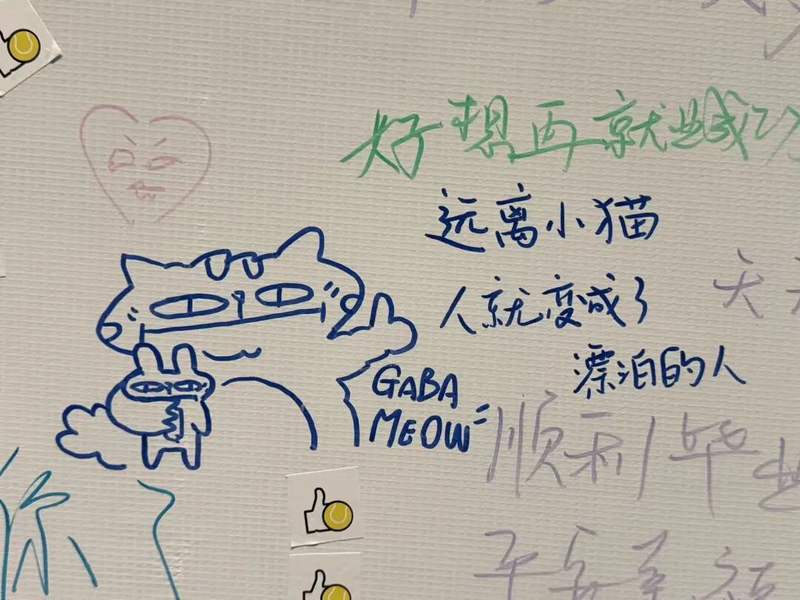 好想再就业成
远离小猫
人就变成了
漂泊的人
天
GABA
MEOW
顺利毕业
你
平安幸